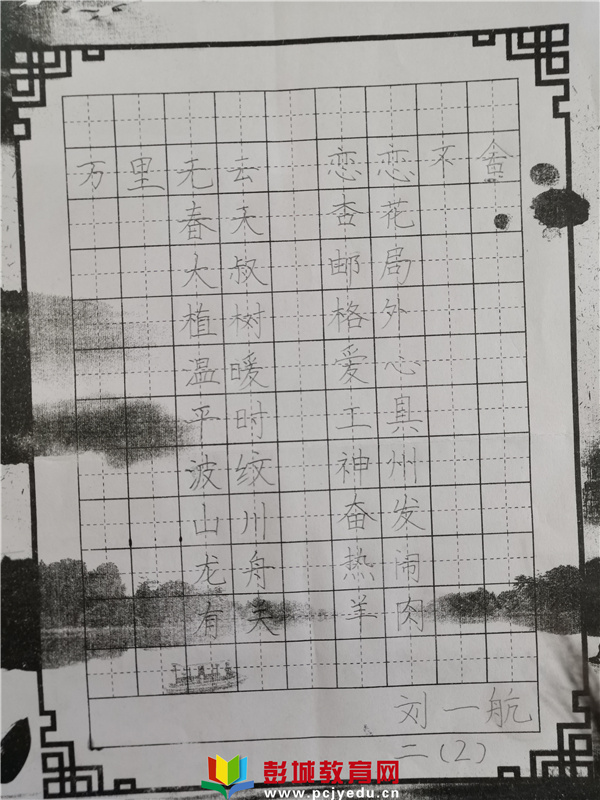 万里无云 恋恋不舍
春天 杏花
大叔 邮局
植树 格外
温暖 爱心
平时 工具
波纹 神州
山川 奋发
龙舟 热闹
有关 羊肉
刘一航
二(2)
彭城教育网
www.pcjyedu.cn